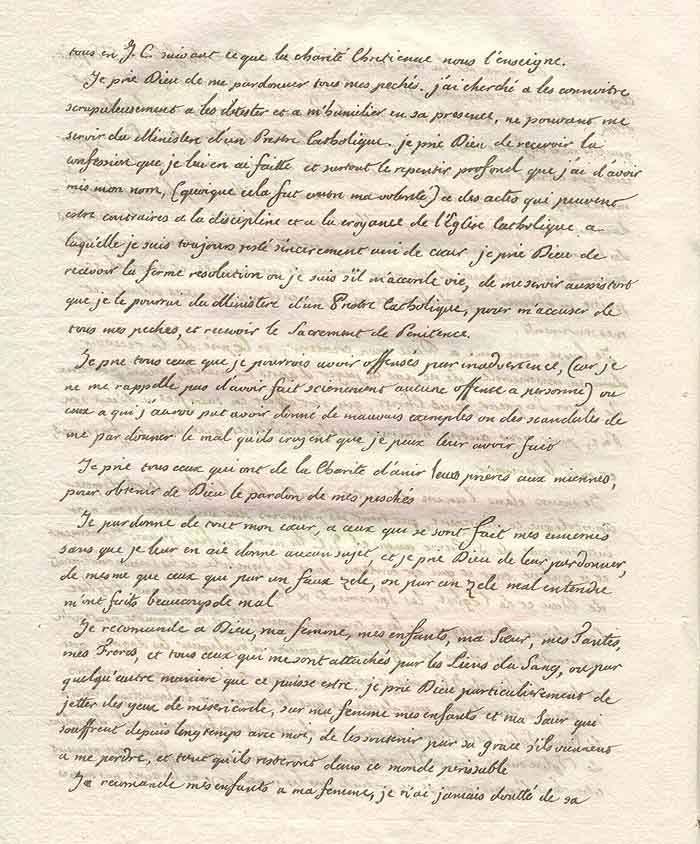 tous en J. C. suivant ce que la charité Chretienne nous l'enseigne.
Je prie Dieu de me pardonner tous mes pechés. j'ai cherché a les connoitre
scrupuleusement a les detester et a m'humilier en sa presence, ne pouvant me
servir du Ministere d'un Prestre Catholique. je prie Dieu de recevoir la
confession que je lui en ai faitte et surtout le repentir profond que j'ai d'avoir
mis mon nom, (quoique cela fut contre ma volonté) a des actes qui peuvent
estre contraires a la discipline et a la croyance de l'Eglise Catholique a
laquelle je suis toujours resté sincerement uni de cœur je prie Dieu de
recevoir la ferme resolution ou je suis s'il m'accorde vie, de me servir aussitost
que je le pourrai du Ministere d'un Prestre Catholique, pour m'accuser de
tous mes pechés, et recevoir le Sacrement de Penitence.
Je prie tous ceux que je pourrois avoir offensés par inadvertence, (car je
ne me rappelle pas d'avoir fait sciemment aucune offense a personne) ou
ceux a qui j'aurois put avoir donné de mauvais exemples ou des scandales de
me pardonner le mal qu'ils croyent que je peux leur avoir fait
Je prie tous ceux qui ont de la Charité d'unir leurs prieres aux miennes,
pour obtenir de Dieu le pardon de mes pechés
Je pardonne de tout mon cœur, a ceux qui se sont fait mes ennemis
sans que je leur en aie donné aucun sujet, et je prie Dieu de leur pardonner,
de mesme que ceux qui par un faux zele, ou par un zele mal entendu
m'ont faits beaucoup de mal
Je recomande a Dieu, ma femme, mes enfants, ma Sœur, mes Tantes,
mes Freres, et tous ceux qui me sont attachés par les Liens du Sang, ou par
quelqu'autre maniere que ce puisse estre. je prie Dieu particulierement de
jetter des yeux de misericorde, sur ma femme mes enfants et ma Sœur qui
souffrent depuis longtemps avec moi, de les soutenir par sa grace s'ils viennent
a me perdre, et tant qu'ils resteront dans ce monde perissable
Je recomande mes enfants a ma femme, je n'ai jamais doutté de sa